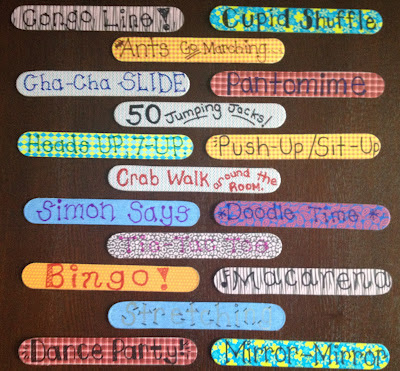 Congo Line!
Cupid Shuffle
*Ants Go Marching...
Cha-Cha SLIDE
Pantomime
50 Jumping Jacks!
Heads UP, 7-UP
Push-Up/Sit-Up
Crab Walk around the ROOM.
Simon Says
*Doodle Time*
Tic-Tac-Toe
Bingo!
Macarena
Stretching
Dance Party!
Mirror-Mirror